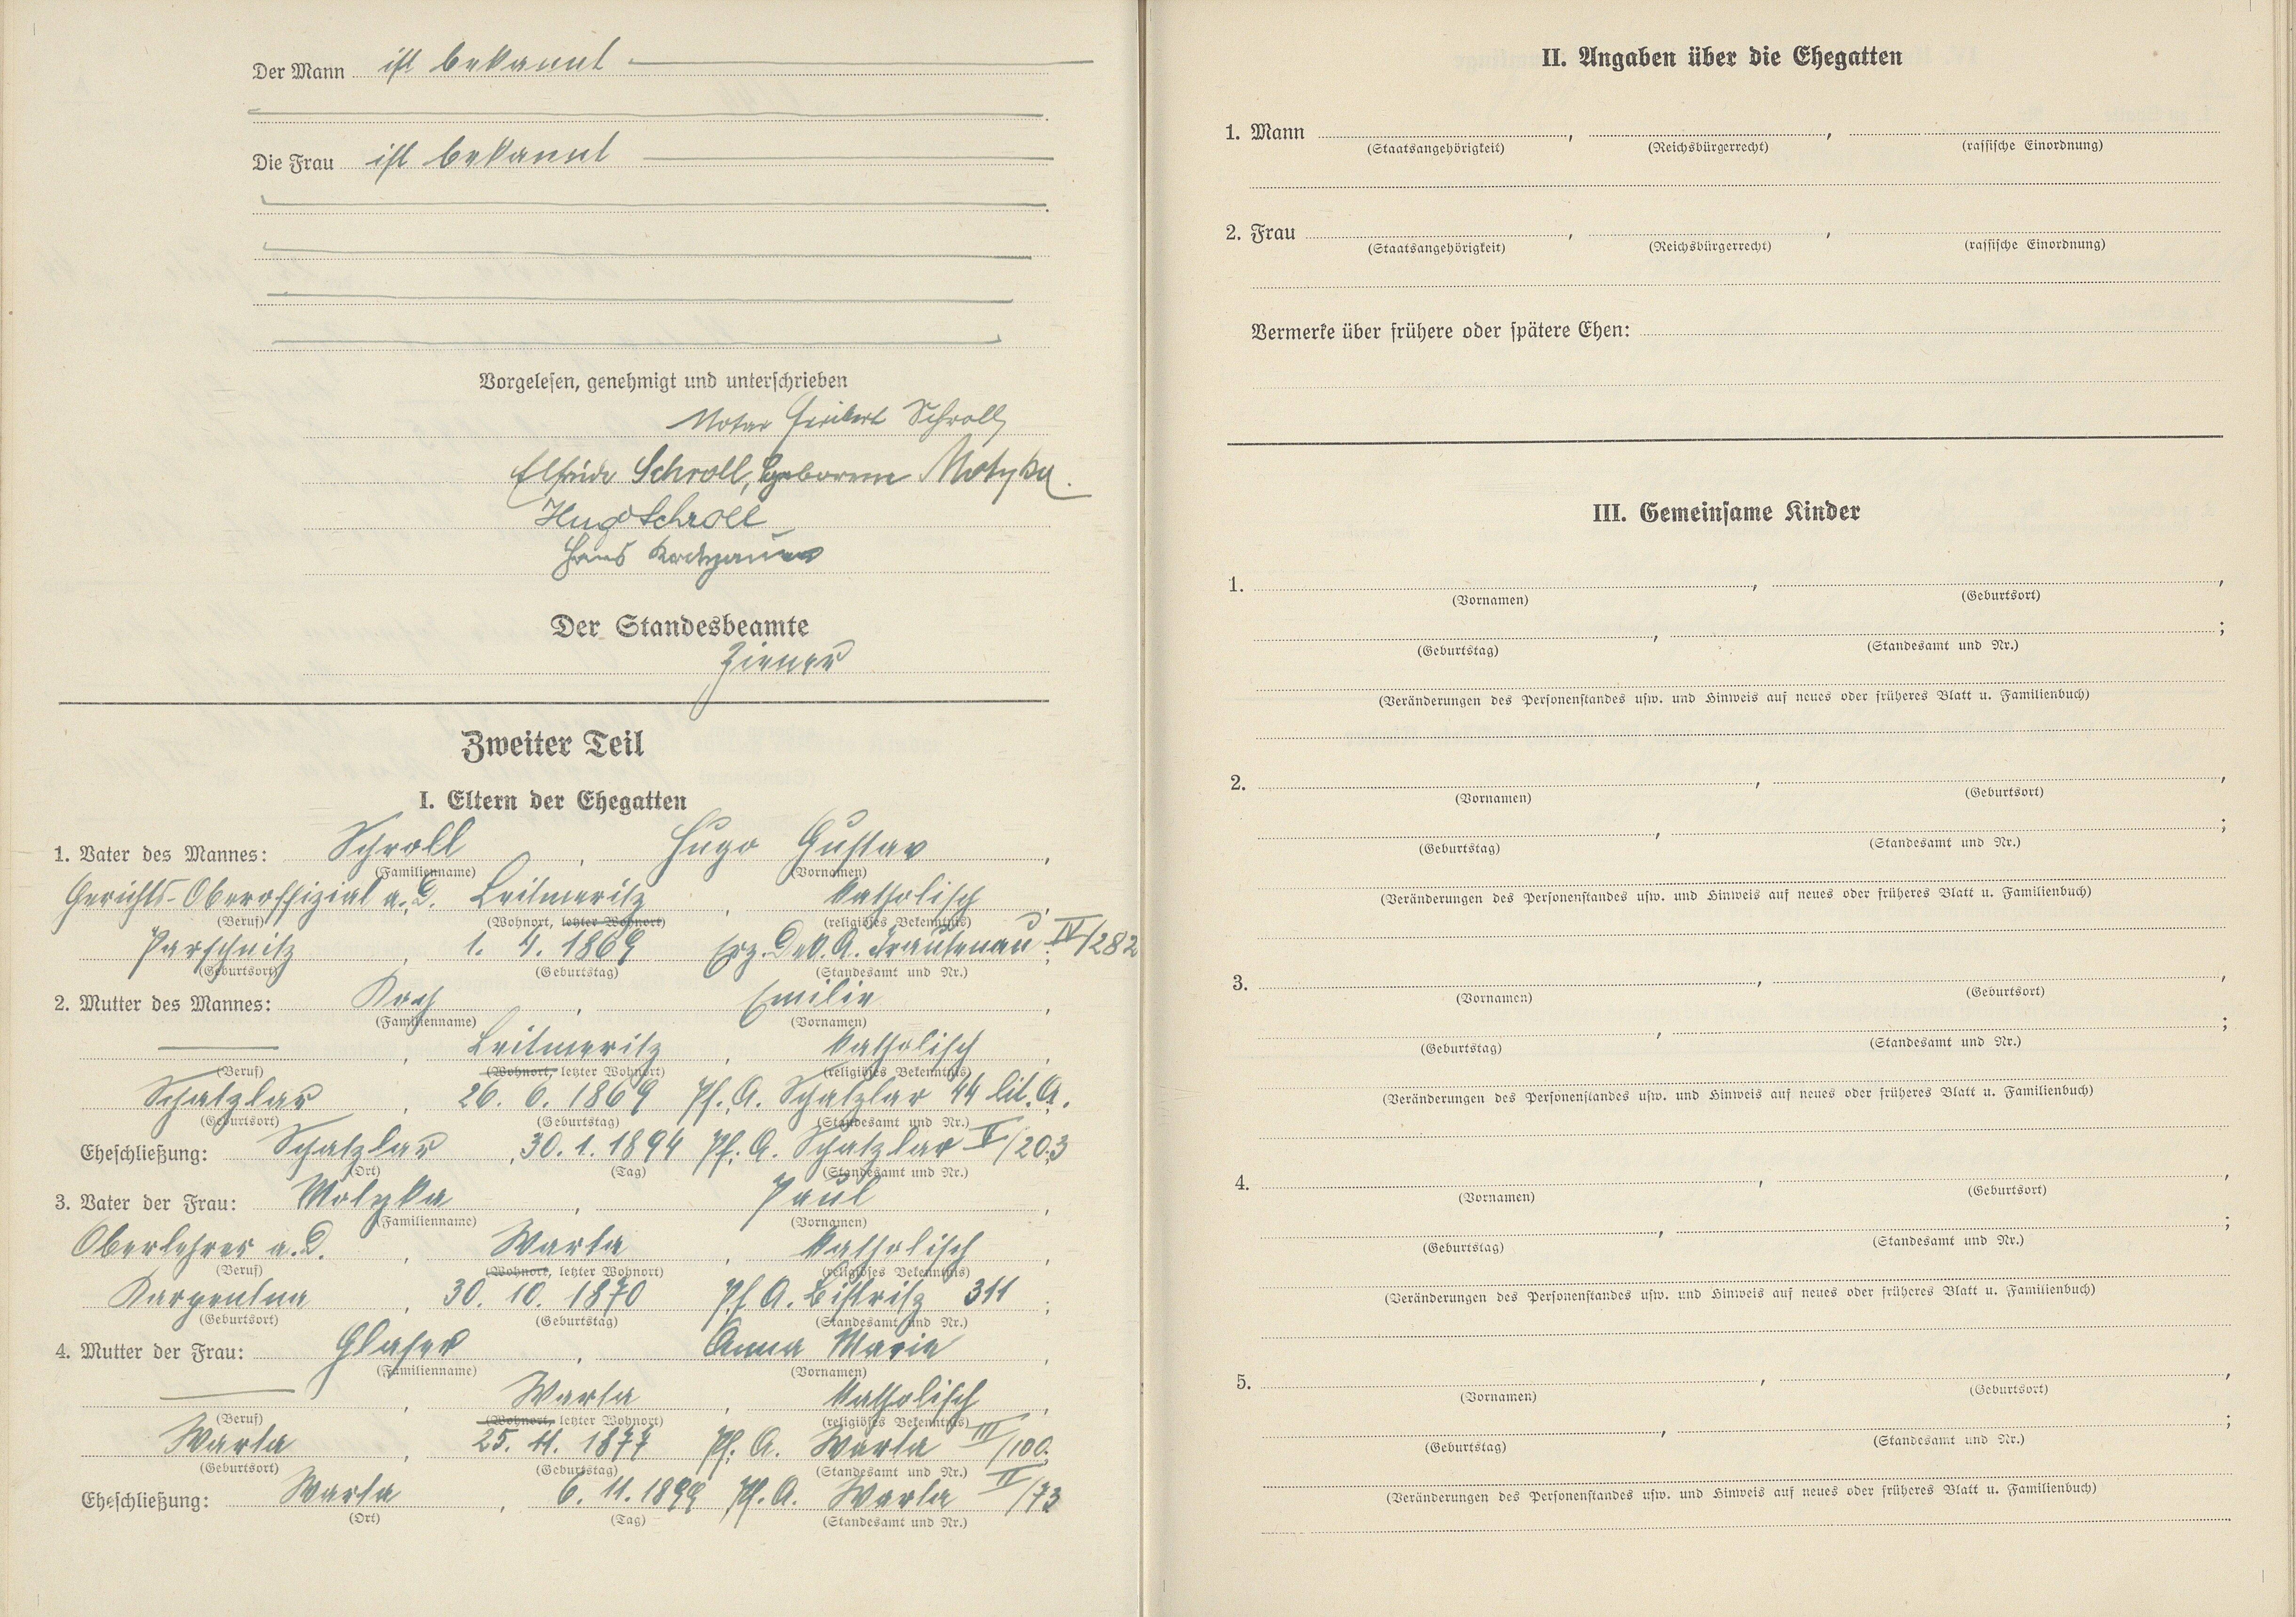 Der Mann ist bekannt
Die Frau ist bekannt
Vorgelesen, genehmigt und unterschrieben
Notar Heribert Schroll
Elfriede Schroll, geborene Motyka.
Hugo Schroll
Hans
Der Standesbeamte
Ziener
Zweiter Teil
I. Eltern der Ehegatten
1. Vater des Mannes: Schroll, Hugo Gustav,
(Familienname) (Vornamen)
Gerichts-Oberoffizial a. D. Leitmeritz, katholisch,
(Beruf) (Wohnort, letzter Wohnort) (religiöses Bekenntnis)
Parschnitz, 1. 4. 1869 Erz. Dek. A. Trautenau IV/282;
(Geburtsort) (Geburtstag) (Standesamt und Nr.)
2. Mutter des Mannes: Koch, Emilie,
(Familienname) (Vornamen)
—, Leitmeritz, katholisch,
(Beruf) (Wohnort, letzter Wohnort) (religiöses Bekenntnis)
Schatzlar, 26. 6. 1869 Pf. A. Schatzlar 44 lit. A.
(Geburtsort) (Geburtstag) (Standesamt und Nr.)
Eheschließung: Schatzlar, 30. 1. 1894 Pf. A. Schatzlar I/203
(Ort) (Tag) (Standesamt und Nr.)
3. Vater der Frau: Motyka, Paul,
(Familienname) (Vornamen)
Oberlehrer a. D., Warta, katholisch,
(Beruf) (Wohnort, letzter Wohnort) (religiöses Bekenntnis)
Karpentna, 30. 10. 1870 Pf. A. Bistritz 311;
(Geburtsort) (Geburtstag) (Standesamt und Nr.)
4. Mutter der Frau: Glaser, Anna Marie,
(Familienname) (Vornamen)
—, Warta, katholisch,
(Beruf) (Wohnort, letzter Wohnort) (religiöses Bekenntnis)
Warta, 25. 11. 1877 Pf. A. Warta III/100.
(Geburtsort) (Geburtstag) (Standesamt und Nr.)
Eheschließung: Warta, 6. 11. 1899 Pf. A. Warta II/73
(Ort) (Tag) (Standesamt und Nr.)
II. Angaben über die Ehegatten
1. Mann , ,
(Staatsangehörigkeit) (Reichsbürgerrecht) (rassische Einordnung)
2. Frau , ,
(Staatsangehörigkeit) (Reichsbürgerrecht) (rassische Einordnung)
Vermerke über frühere oder spätere Ehen:
III. Gemeinsame Kinder
1. , ,
(Vornamen) (Geburtsort)
, ;
(Geburtstag) (Standesamt und Nr.)
(Veränderungen des Personenstandes usw. und Hinweis auf neues oder früheres Blatt u. Familienbuch)
2. , ,
(Vornamen) (Geburtsort)
, ;
(Geburtstag) (Standesamt und Nr.)
(Veränderungen des Personenstandes usw. und Hinweis auf neues oder früheres Blatt u. Familienbuch)
3. , ,
(Vornamen) (Geburtsort)
, ;
(Geburtstag) (Standesamt und Nr.)
(Veränderungen des Personenstandes usw. und Hinweis auf neues oder früheres Blatt u. Familienbuch)
4. , ,
(Vornamen) (Geburtsort)
, ;
(Geburtstag) (Standesamt und Nr.)
(Veränderungen des Personenstandes usw. und Hinweis auf neues oder früheres Blatt u. Familienbuch)
5. , ,
(Vornamen) (Geburtsort)
, ;
(Geburtstag) (Standesamt und Nr.)
(Veränderungen des Personenstandes usw. und Hinweis auf neues oder früheres Blatt u. Familienbuch)